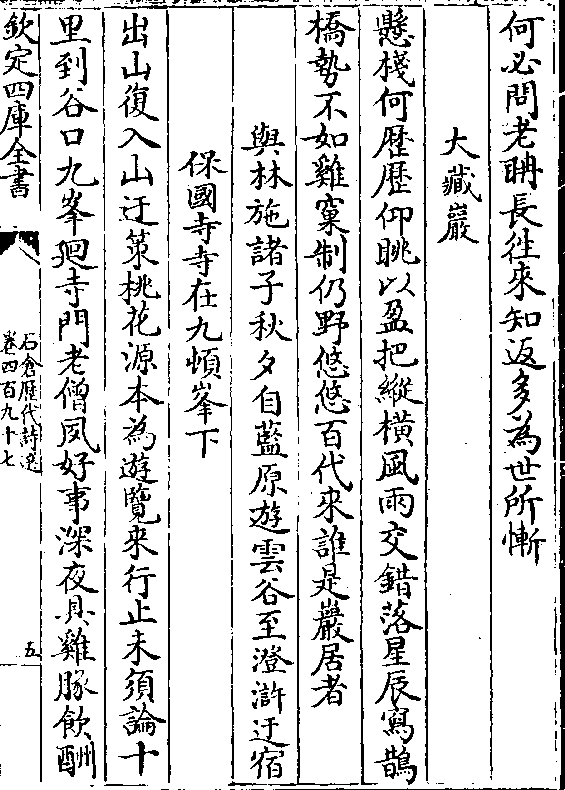 何必問老聃長往來知返多為世所慚
大藏巖
懸棧何歷歷仰眺以盈把縱橫風雨交錯落星辰寫鵲
橋勢不如雞窠制仍野悠悠百代來誰是巖居者
與林施諸子秋夕自藍原遊雲谷至澄滸迂宿
保國寺寺在九頓峯下
出山復入山迂策桃花源本為遊覽來行止未須論十
里到谷口九峯廻寺門老僧夙好事深夜具雞豚飲酬
欽定四庫全書
石倉歷代詩選
卷四百九十七
五